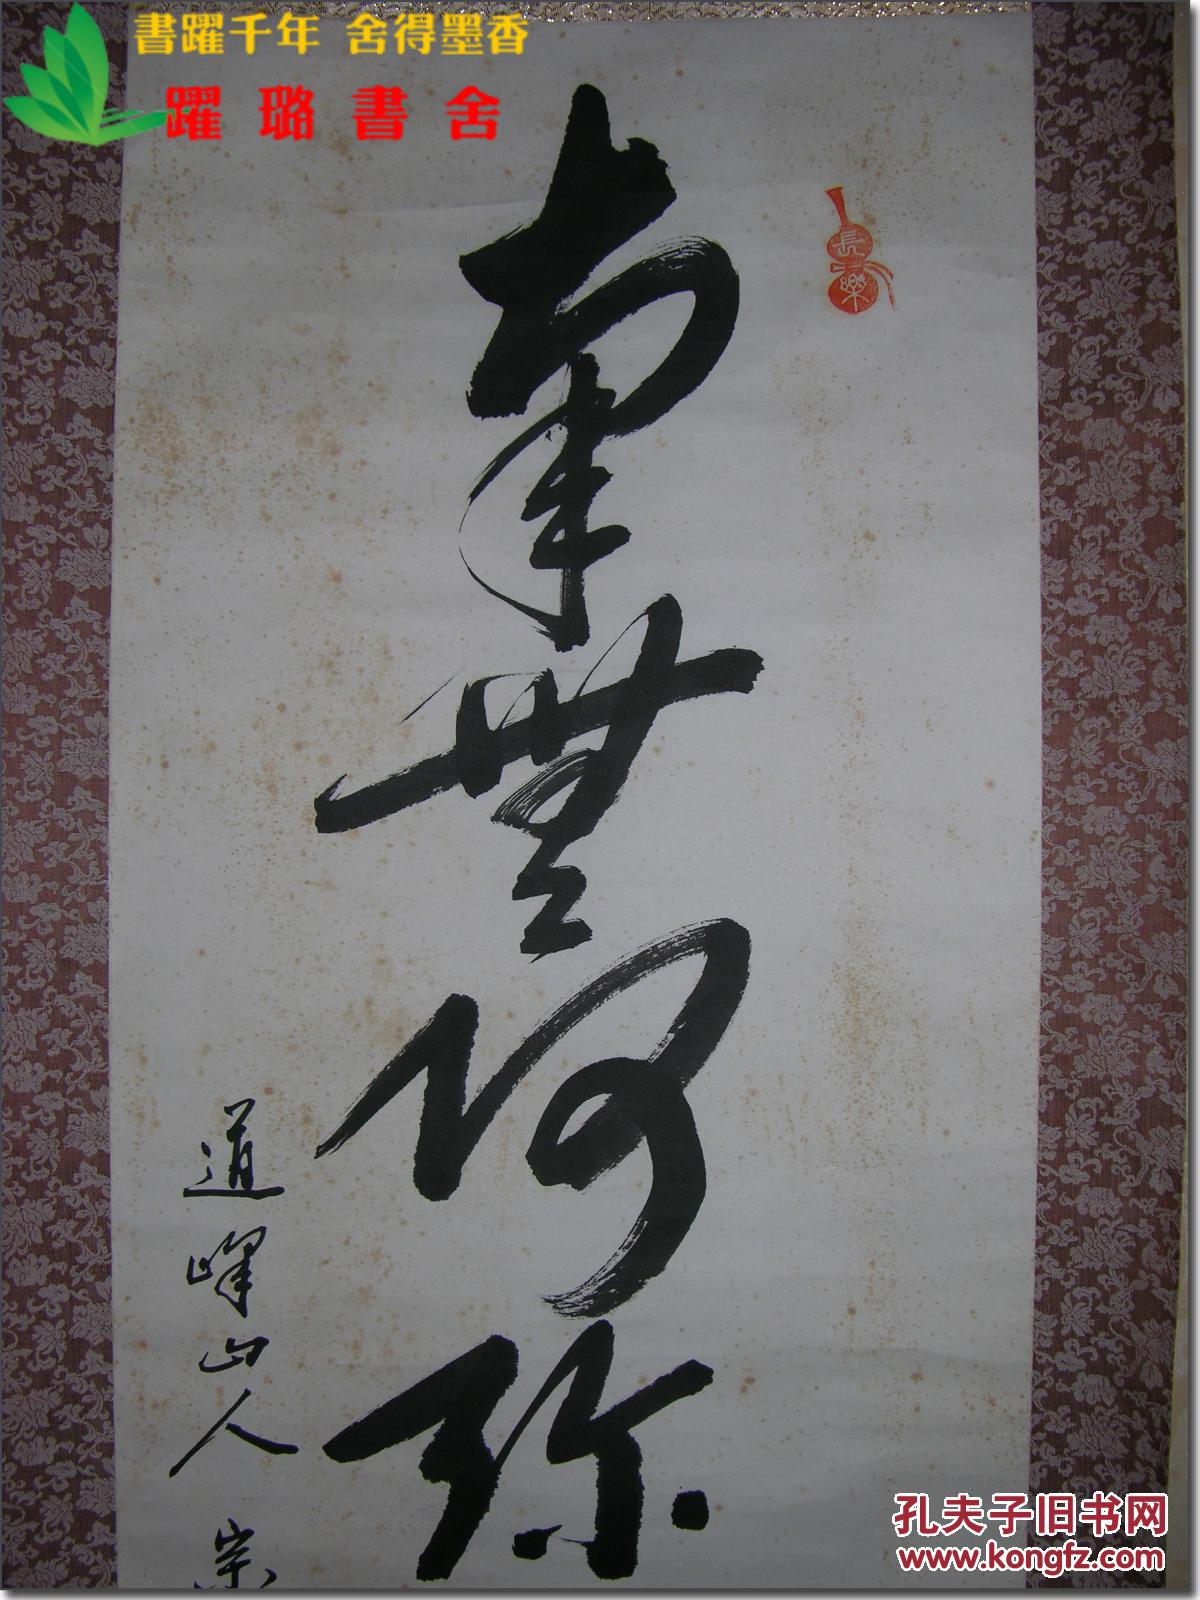 書躍千年 舍得墨香
躍璐書舍
長樂
南無阿弥
道峰山人 宗
孔夫子旧书网
www.kongfz.com